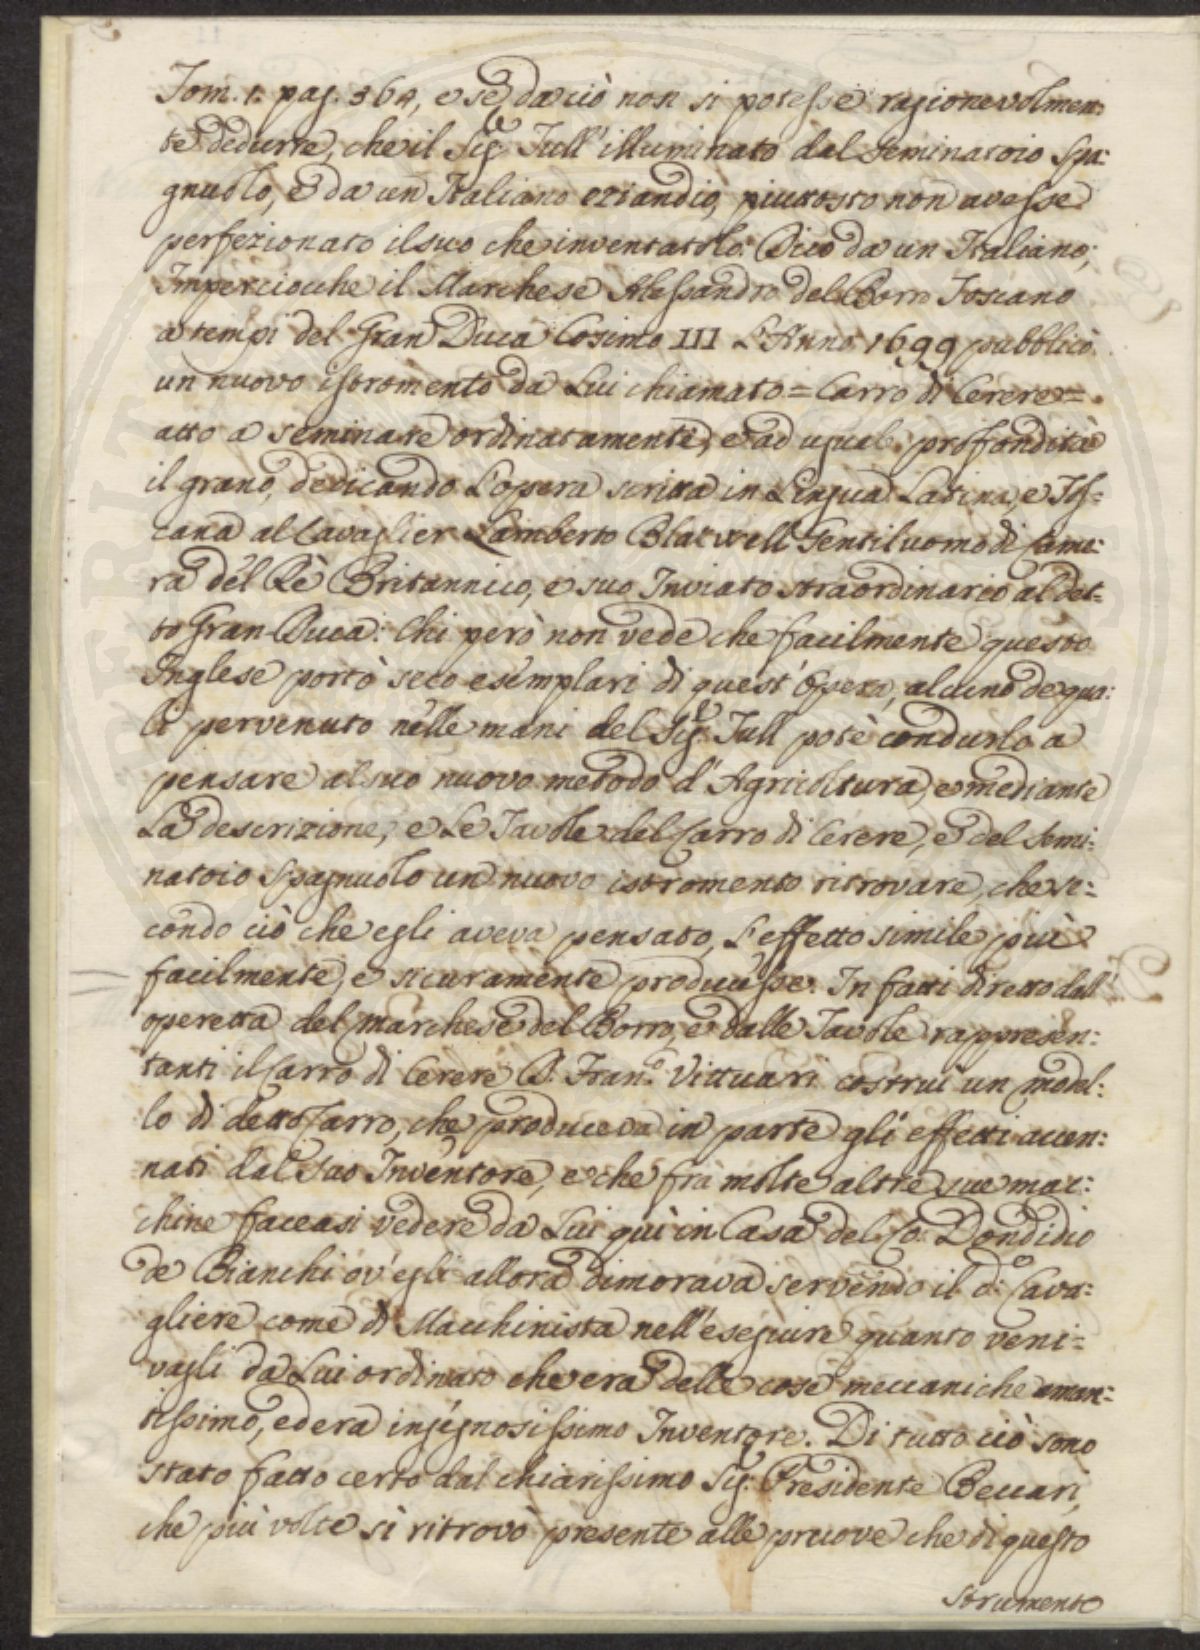 Tom. 1. pag. 364, e se da ciò non si potesse ragionevolmen:
te dedurre, che il Sig.e Tull' illuminato dal Seminatoio Spa:
gnuolo, e da un Italiano eziandio, piuttosto non avesse
perfezionato il suo che inventatolo. Dico da un Italiano;
Imperciocche il Marchese Alessandro del Borro Toscano
a tempi del Gran Duca Cosimo III L'Anno 1699 pubblicò
un nuovo istromento da Lui chiamato = Carro di Cerere =
atto a seminare ordinatamente, e ad ugual profondità
il grano, dedicando L'opera scritta in Lingua Latina, e Tos=
cana al Cavaglier Lamberto Blacwell Gentiluomo di Came:
ra del Rè Britannico, e suo Inviato straordinario al det=
to Gran Duca: Chi però non vede che facilmente questo
Inglese portò seco esemplari di quest'Opera, alcuno de qua:
li pervenuto nelle mani del Sig.e Tull potè condurlo a
pensare al suo nuovo metodo d'Agricoltura, e mediante
La descrizione, e Le Tavole del Carro di Cerere, e del Semi:
natoio Spagnuolo un nuovo istromento ritrovare, che se=
condo ciò che egli aveva pensato, L'effetto simile più
facilmente, e sicuramente producesse. In fatti diretto dall'
operetta del Marchese del Borro, e dalle Tavole rappresen:
tanti il Carro di Cerere D. Fran.o Vittuari costruì un model:
lo di detto Carro, che produceva in parte gli effetti accen:
nati dal suo Inventore, e che frà molte altre sue mac:
chine faceasi vedere da Lui quì in Casa del Co: Dondidio
de Bianchi ov'egli allora dimorava servendo il d.o Cava:
gliere come di Macchinista nell'eseguire quanto veni=
vagli da Lui ordinato che era delle cose meccaniche aman:
tissimo, ed era ingegnosissimo Inventore. Di tutto ciò sono
stato fatto certo dal chiarissimo Sig. Presidente Beccari,
che più volte si ritrovò presente alle pruove che di questo
strumento